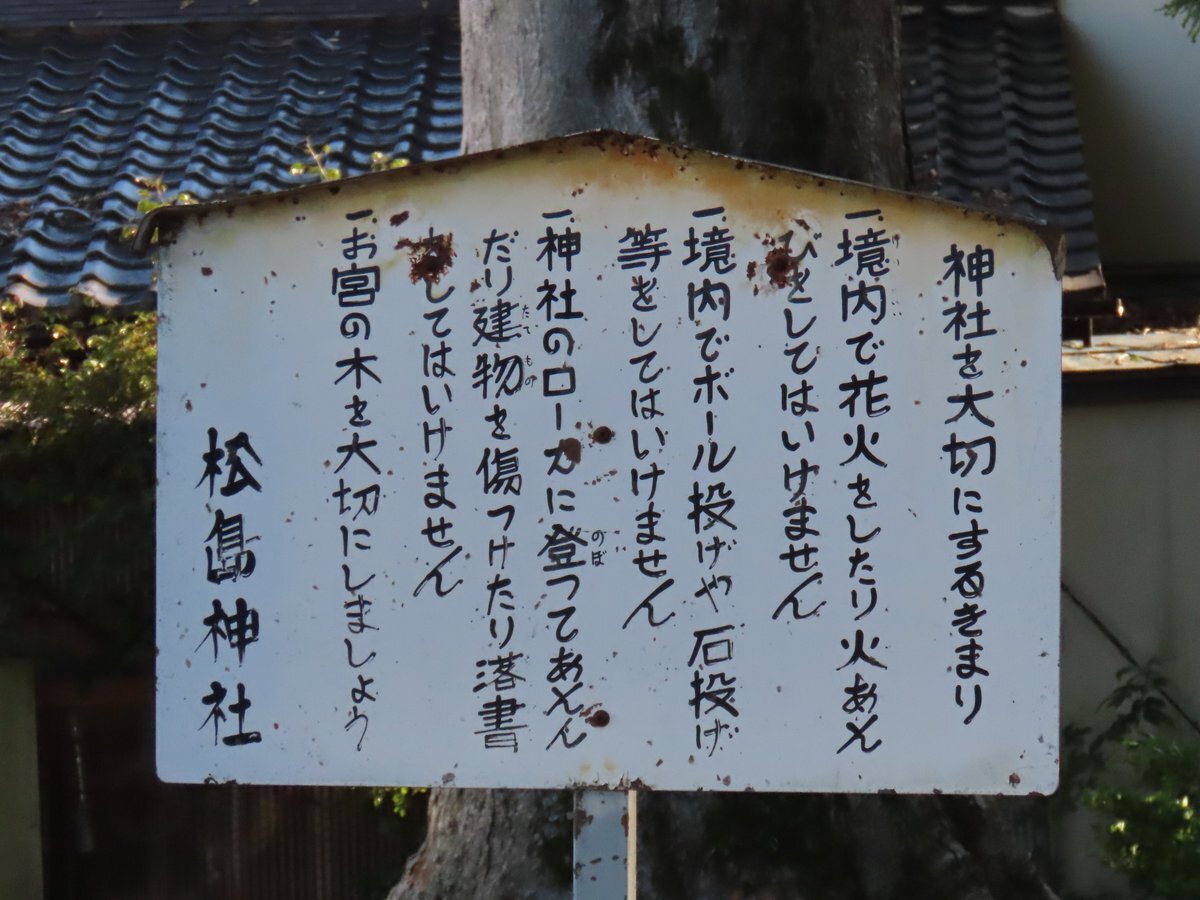 神社を大切にするきまり
一、境内で花火をしたり火あそ
びをしてはいけません
一、境内でボール投げや石投げ
等をしてはいけません
のぼ
一、神社のローカに登つてあそん
たてもの
だり建物を傷つけたり落書
してはいけません
一、お宮の木を大切にしましょう
松島神社